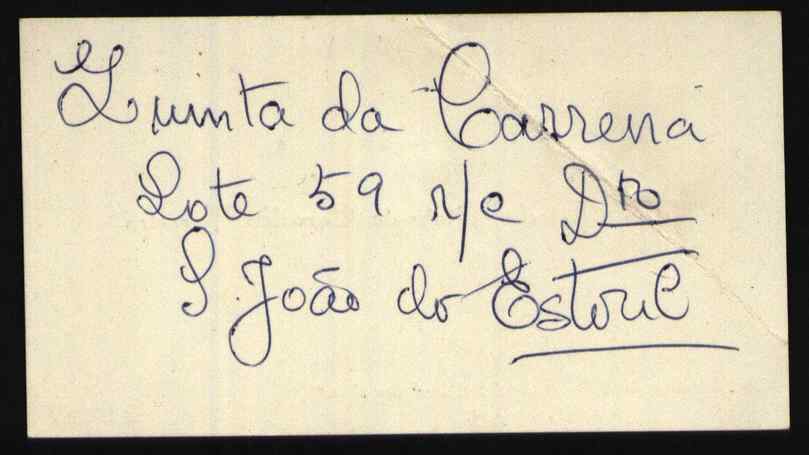 Quinta da Carreira
Lote 59 r/c Dto
S. João do Estoril